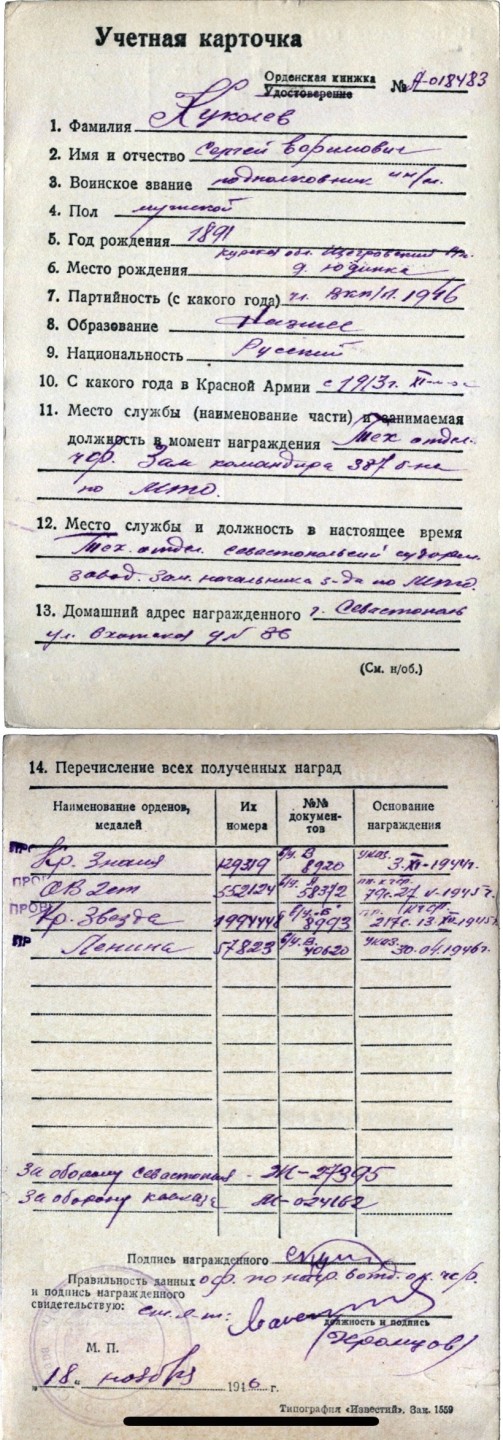 Учетная карточка
Орденская книжка
Удостоверение № А-018483
1. Фамилия Куколев
2. Имя и отчество Сергей
3. Воинское звание подполковник ин/сл.
4. Пол мужской
5. Год рождения 1891
Курская обл. Щигровский
6. Место рождения д. Юдинка
7. Партийность (с какого года) чл. ВКП/б. 1946
8. Образование Низшее
9. Национальность Русский
10. С какого года в Красной Армии с 1913 г.
11. Место службы (наименование части) и занимаемая
должность в момент награждения Тех отдел.
ЧФ. Зам командира 387 б-на
по МТО.
12. Место службы и должность в настоящее время
Тех. отдел. Севастопольский
завод. Зам. начальника з-да по МТО.
13. Домашний адрес награжденного г. Севастополь
ул. Охотская
(См. н/об.)
14. Перечисление всех полученных наград
Наименование орденов, медалей Их номера №№ документов Основание награждения
Кр. Знамя 129319 В 8920 указ. 3.XI-1944г.
ОВ 2 ст 552124 58372 27 V-1945г.
Кр. Звезда 1994448 "Б" 8993 217с. 13. 1945г.
Ленина 57823 В 40620 указ. 30.04.1946г.
За оборону Севастополя - Ж-27395
За оборону Кавказа М-024162
Подпись награжденного
Правильность данных
и подпись награжденного
свидетельствую:
должность и подпись
(Храмцов)
М. П.
„18“ ноября 1946 г.
Типография «Известий». Зак. 1559